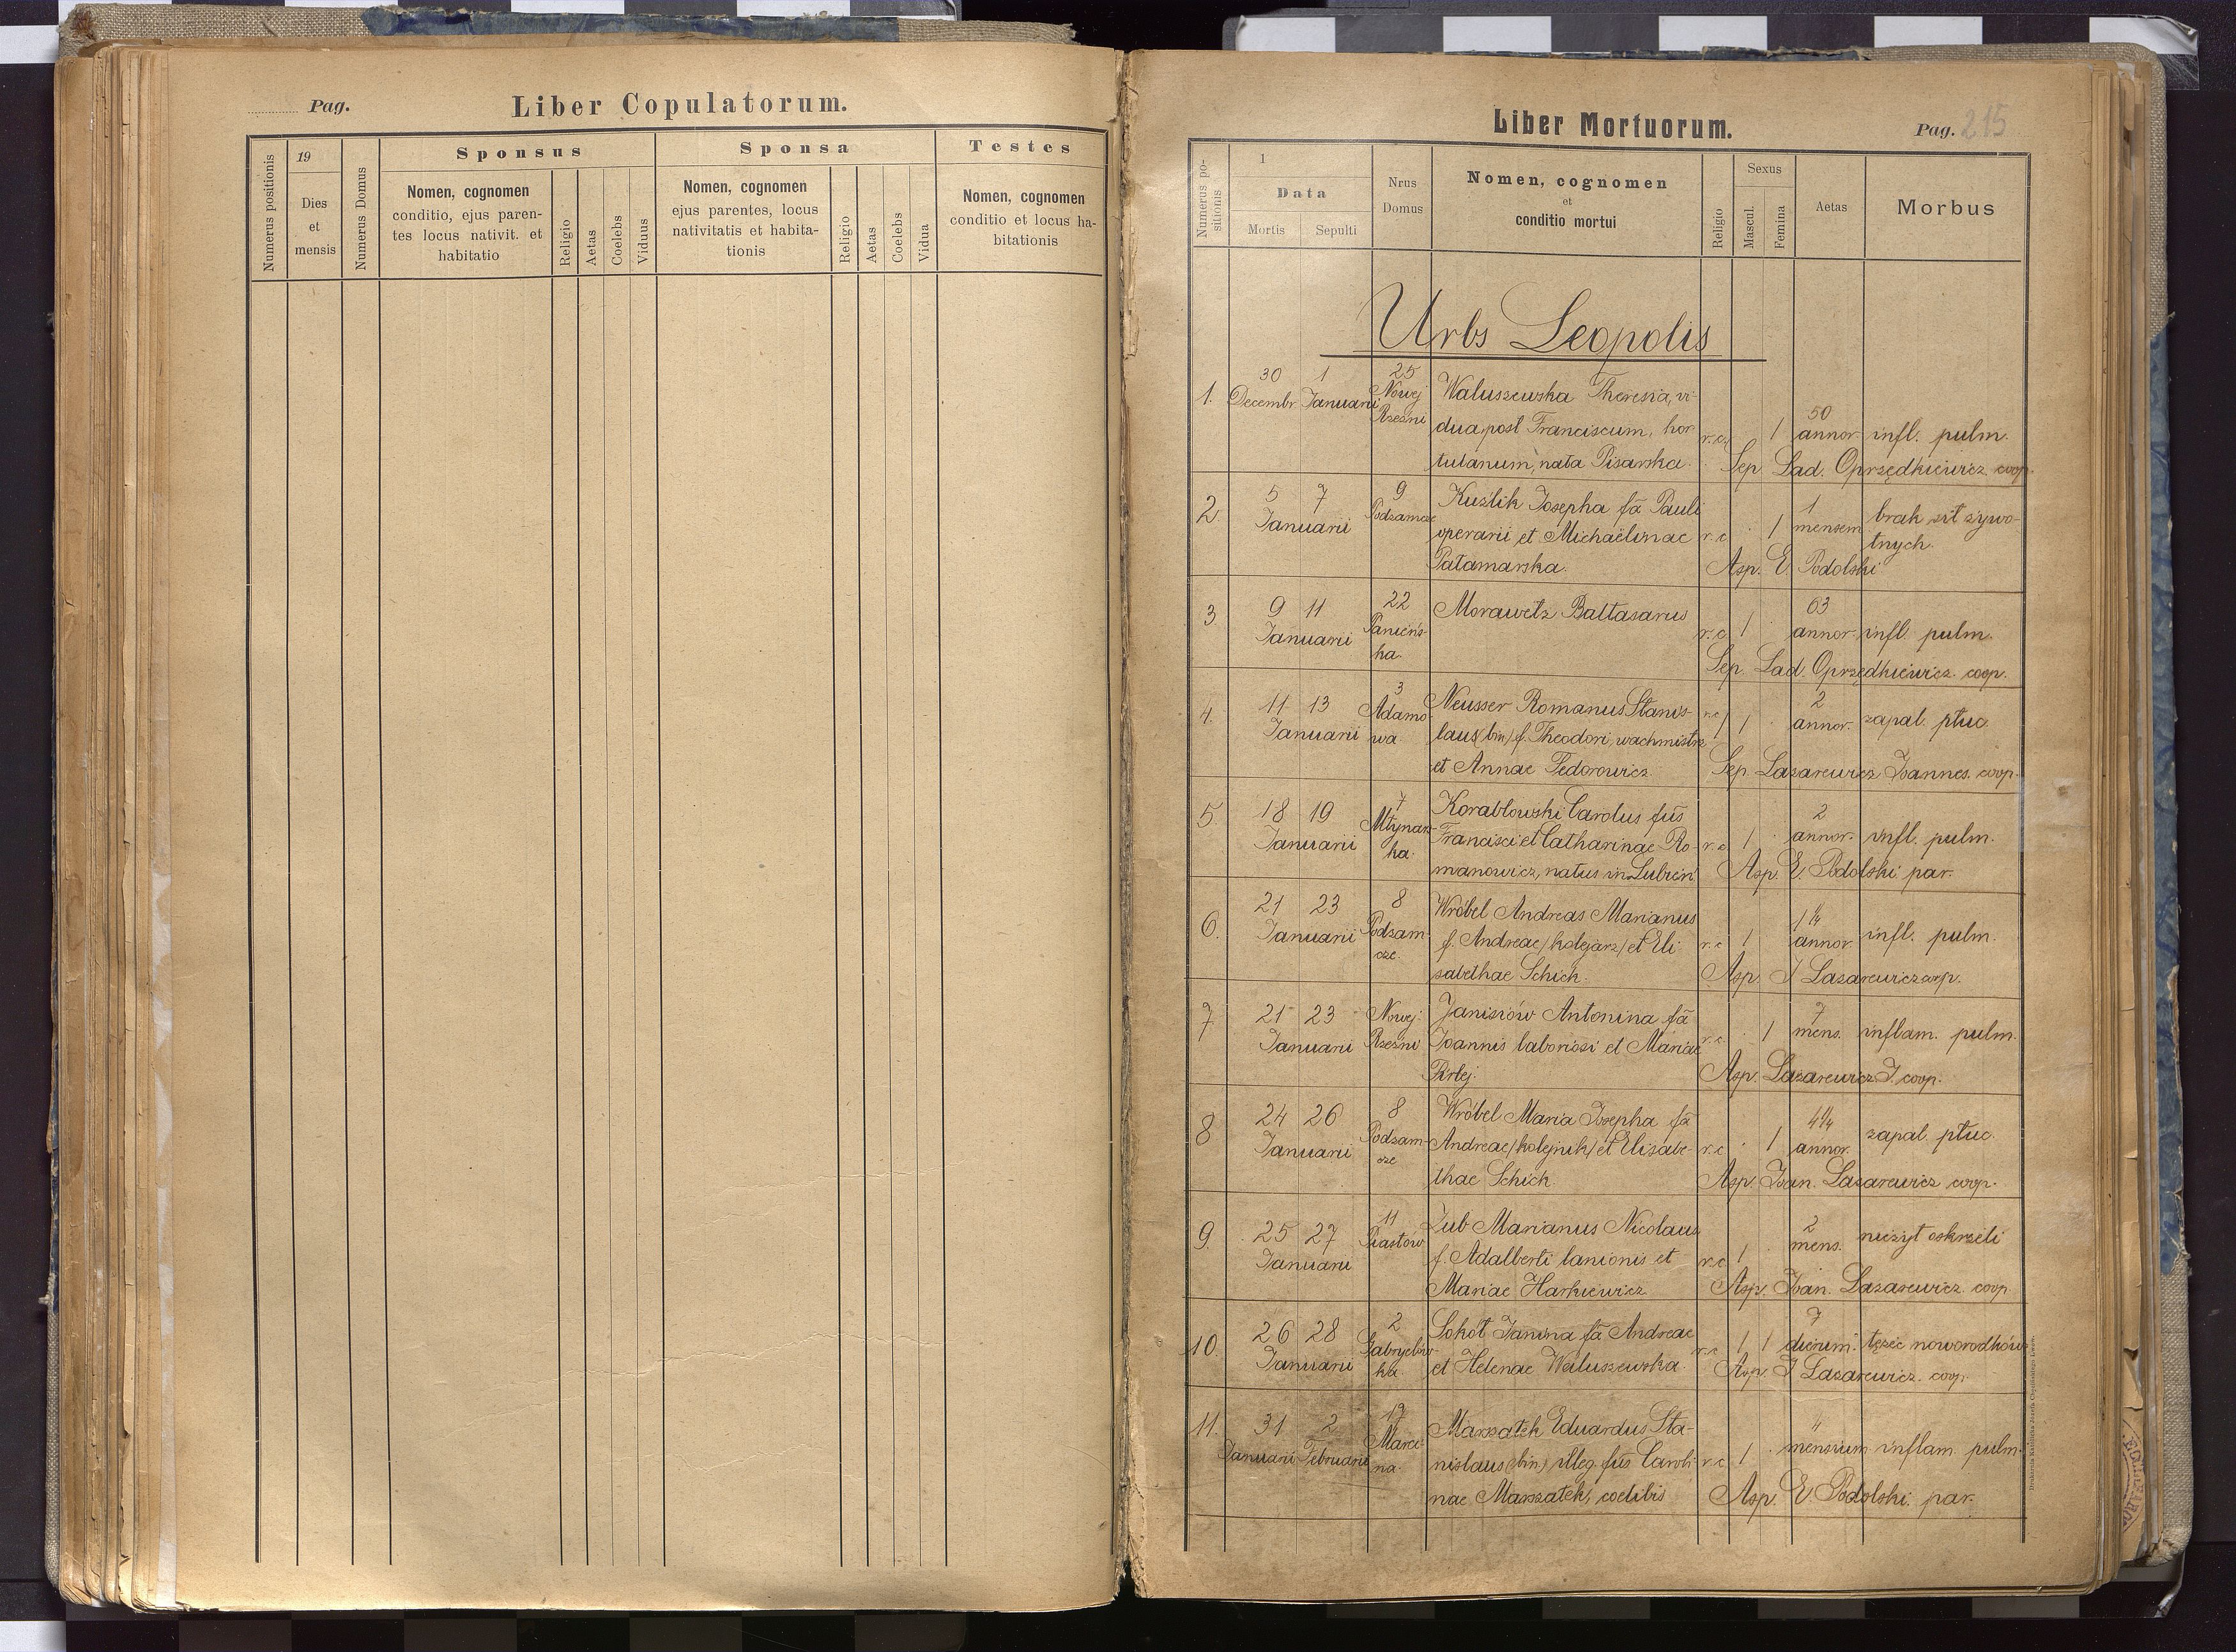 Pag.
Liber Copulatorum.
Numerus positionis
19
Dies
et
mensis
Numerus Domus
Sponsus
Nomen, cognomen
conditio, ejus paren-
tes locus nativit. et
habitatio
Religio
Aetas
Coelebs
Viduus
Sponsa
Nomen, cognomen
ejus parentes, locus
nativitatis et habita-
tionis
Religio
Aetas
Coelebs
Vidua
Testes
Nomen, cognomen
conditio et locus ha-
bitationis
Liber Mortuorum.
Pag. 215
Numerus po-
sitionis
1
Data
Mortis
Sepulti
Nrus
Domus
Nomen, cognomen
et
conditio mortui
Religio
Sexus
Mascul.
Femina
Aetas
Morbus
Urbs Leopolis
1.
30 1
Decembr. Januarii
25
Nowej
Rzeźni
Waluszewska Theresia, vi-
dua post Franciscum, hor
tulanum, nata Pisarska.
r.c. 1
50
annor. infl. pulm.
Sep. Lad. Oprzędkiewicz coop.
2.
5 7
Januarii
9
Podzamcze
Kuzlik Josepha fa Pauli
operarii et Michaëlinae
Patamarska.
r.c 1
1
mensem
brak sił żywo-
tnych.
Asp. E. Podolski
3.
9 11
Januarii
22
Panieńs-
ka.
Morawetz Baltasarus
r.c. 1
63
annor. infl. pulm.
Sep. Lad. Oprzędkiewicz. coop.
4.
11 13
Januarii
3
Adamo
wa.
Neusser Romanus Stanis-
laus (bin) f. Theodori, wachmistrz
et Annae Fedorowicz.
r.c 1
2
annor. zapal. płuc
Sep. Lazarewicz Joannes. coop.
5
18 19
Januarii
7
Młynars-
ka.
Korabłowski Carolus fus
Francisci et Catharinae Ro-
manowicz, natus in Lubień
r.c 1
2
annor. infl. pulm.
Asp. E. Podolski par.
6.
21 23
Januarii
8
Podzam-
cze.
Wróbel Andreas Marianus
f. Andreae /kolejarz/ et Eli
sabethae Schick.
r.c 1
1 1/4
annor. infl. pulm.
Asp. J Lazarewicz coop.
7
21 23
Januarii
Nowej
Rzeźni
Janisiów Antonina fa
Joannis laboriosi et Mariae
r.c. 1
7
mens. inflam. pulm.
Asp. Lazarewicz J. coop.
8
24 26
Januarii
8
Podzam-
cze
Wróbel Maria Josepha fa
Andreae /kolejnik/ et Elisabe-
thae Schick
r.c 1
4 1/4
annor. zapal. płuc.
Asp. Joan. Lazarewicz coop.
9.
25 27
Januarii
11
Piastów
Zub Marianus Nicolaus
f. Adalberti lanionis et
Mariae Harkiewicz
r.c 1
2
mens. nieżyt oskrzeli
Asp. Joan. Lazarewicz. coop.
10.
26 28
Januarii
2
Gabryelów-
ka.
Sokół Janina fa Andreae
et Helenae Waluszewska.
r.c 1 1
7
dierum. tężec noworodków
Asp. J Lazarewicz. coop.
11.
31 2
Januarii Februarii
19
Marci-
na.
Marszałek Eduardus Sta-
nislaus (bin) illeg. fus Caroli-
nae Marszałek, coelibis
r.c 1
4
mensium inflam. pulm.
Asp. E Podolski. par.